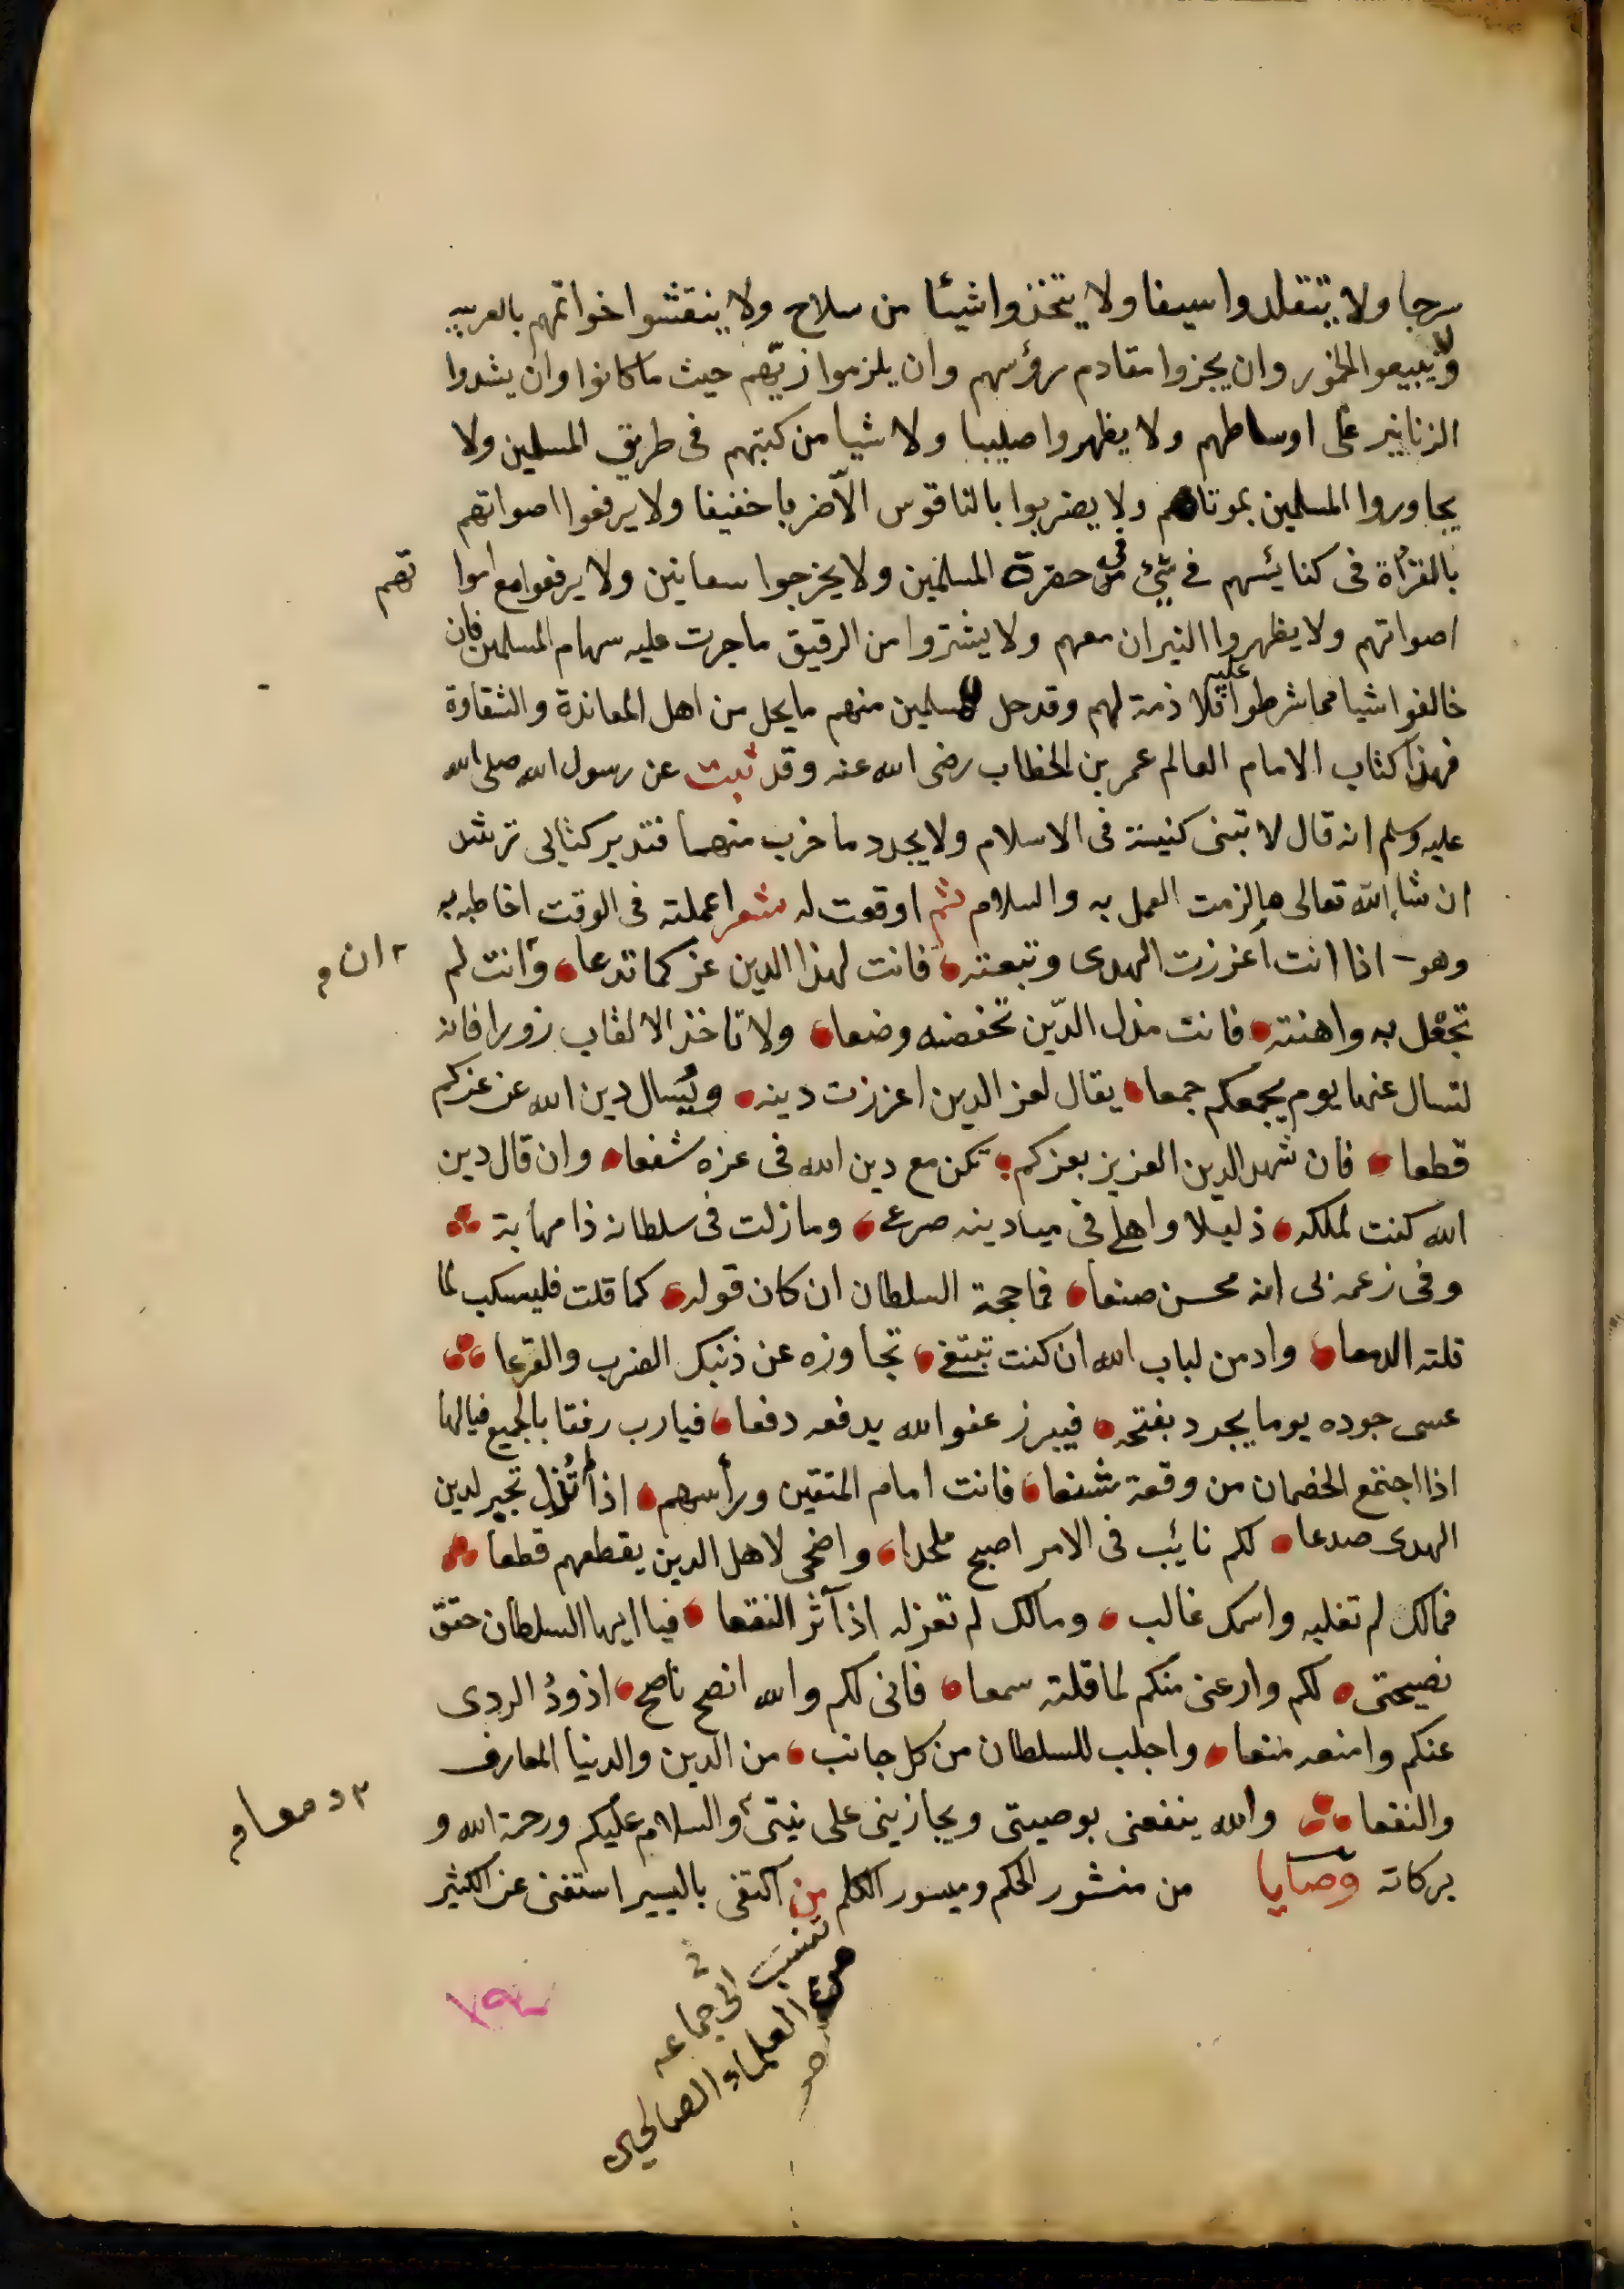 سرجا ولا يتقلدوا سيفا ولا يتخذوا شيئا من سلاح ولا ينقشوا خواتمهم بالعربية
ولا يبيعوا الخمور وان يجزوا مقادم رؤسهم وان يلزموا زيهم حيث ما كانوا وان يشدوا
الزنانير على اوساطهم ولا يظهروا صليبا ولا شيا من كتبهم فى طريق المسلمين ولا
يجاوروا المسلمين بموتاهم ولا يضربوا بالناقوس الّا ضربا خفيفا ولا يرفعوا اصواتهم
بالقراة فى كنايسهم فى شئ فى حضرة المسلمين ولا يخرجوا سعانين ولا يرفعوا مع اموا تهم
اصواتهم ولا يظهروا النيران معهم ولا يشتروا من الرقيق ما جرت عليه سهام المسلمين فان
خالفوا شيا مما شرطوا عليه فلا ذمة لهم وقد حل للمسلمين منهم ما يحل من اهل المعاندة والشقاوة
فهذا كتاب الامام العالم عمر بن الخطاب رضى الله عنه وقد ثبت عن رسول الله صلى الله
عليه وسلم انه قال لا تبنى كنيسة فى الاسلام ولا يجدد ما خرب منها فتدبر كتابى ترشد
ان شا الله تعالى ما لزمت العمل به والسلام ثم اوقعت له شعرا عملته فى الوقت اخاطبه به
وهو اذا انت اعززت الهدى وتبعته فانت لهذا الدين عز كما تدعا وانت لم
ان
تحفل به واهنته فانت مذل الدّين تخفضه وضعا ولا تاخذ الالقاب زورا فانه
لتسال عنها يوم يجمعكم جمعا يقال لعز الدين اعززت دينه ويُسال دين الله عن عزكم
قطعا فان شهد الدين العزيز بعزكم تكن مع دين الله فى عزه شفعا وان قال دين
الله كنت بملكه ذليلا واهلى فى ميادينه صرعى وما زلت فى سلطانه ذا مهابة
وفى زعمه بى انه محسن صنعا فما حجة السلطان ان كان قوله كما قلت فليسكب لما
قلته الدمعا وادمن لباب الله ان كنت تبتغى تجاوزه عن ذنبك الضرب والقرعا
عسى جوده يوما يجود بفتحه فيبرز عفو الله يدفعه دفعا فيارب رفقا بالجميع فيالها
اذا اجتمع الخصمان من وقعة شنعا فانت امام المتقين ورأسهم اذا لم تزل تجبر لدين
الهدى صدعا لكم نايب فى الامر اصبح ملحدا واضحى لاهل الدين يقطعهم قطعا
فمالك لم تغلبه واسمك غالب ومالك لم تعزله اذ آثر النقعا فيا ايها السلطان حقق
نصيحتى لكم وارعنى منكم لما قلته سمعا فانى لكم والله انصح ناصح اذودُ الردى
عنكم وامنعه منعا واجلب للسلطان من كل جانب من الدين والدنيا المعارف
والنفعا والله ينفعنى بوصيتى ويجازينى على نيتى والسلام عليكم ورحمة الله و
بركاته وصايا من منثور الحكم وميسور الكلم من اكتفى باليسير استغنى عن الكثير
تنسب الى جماعه
من العلماء الصالحين